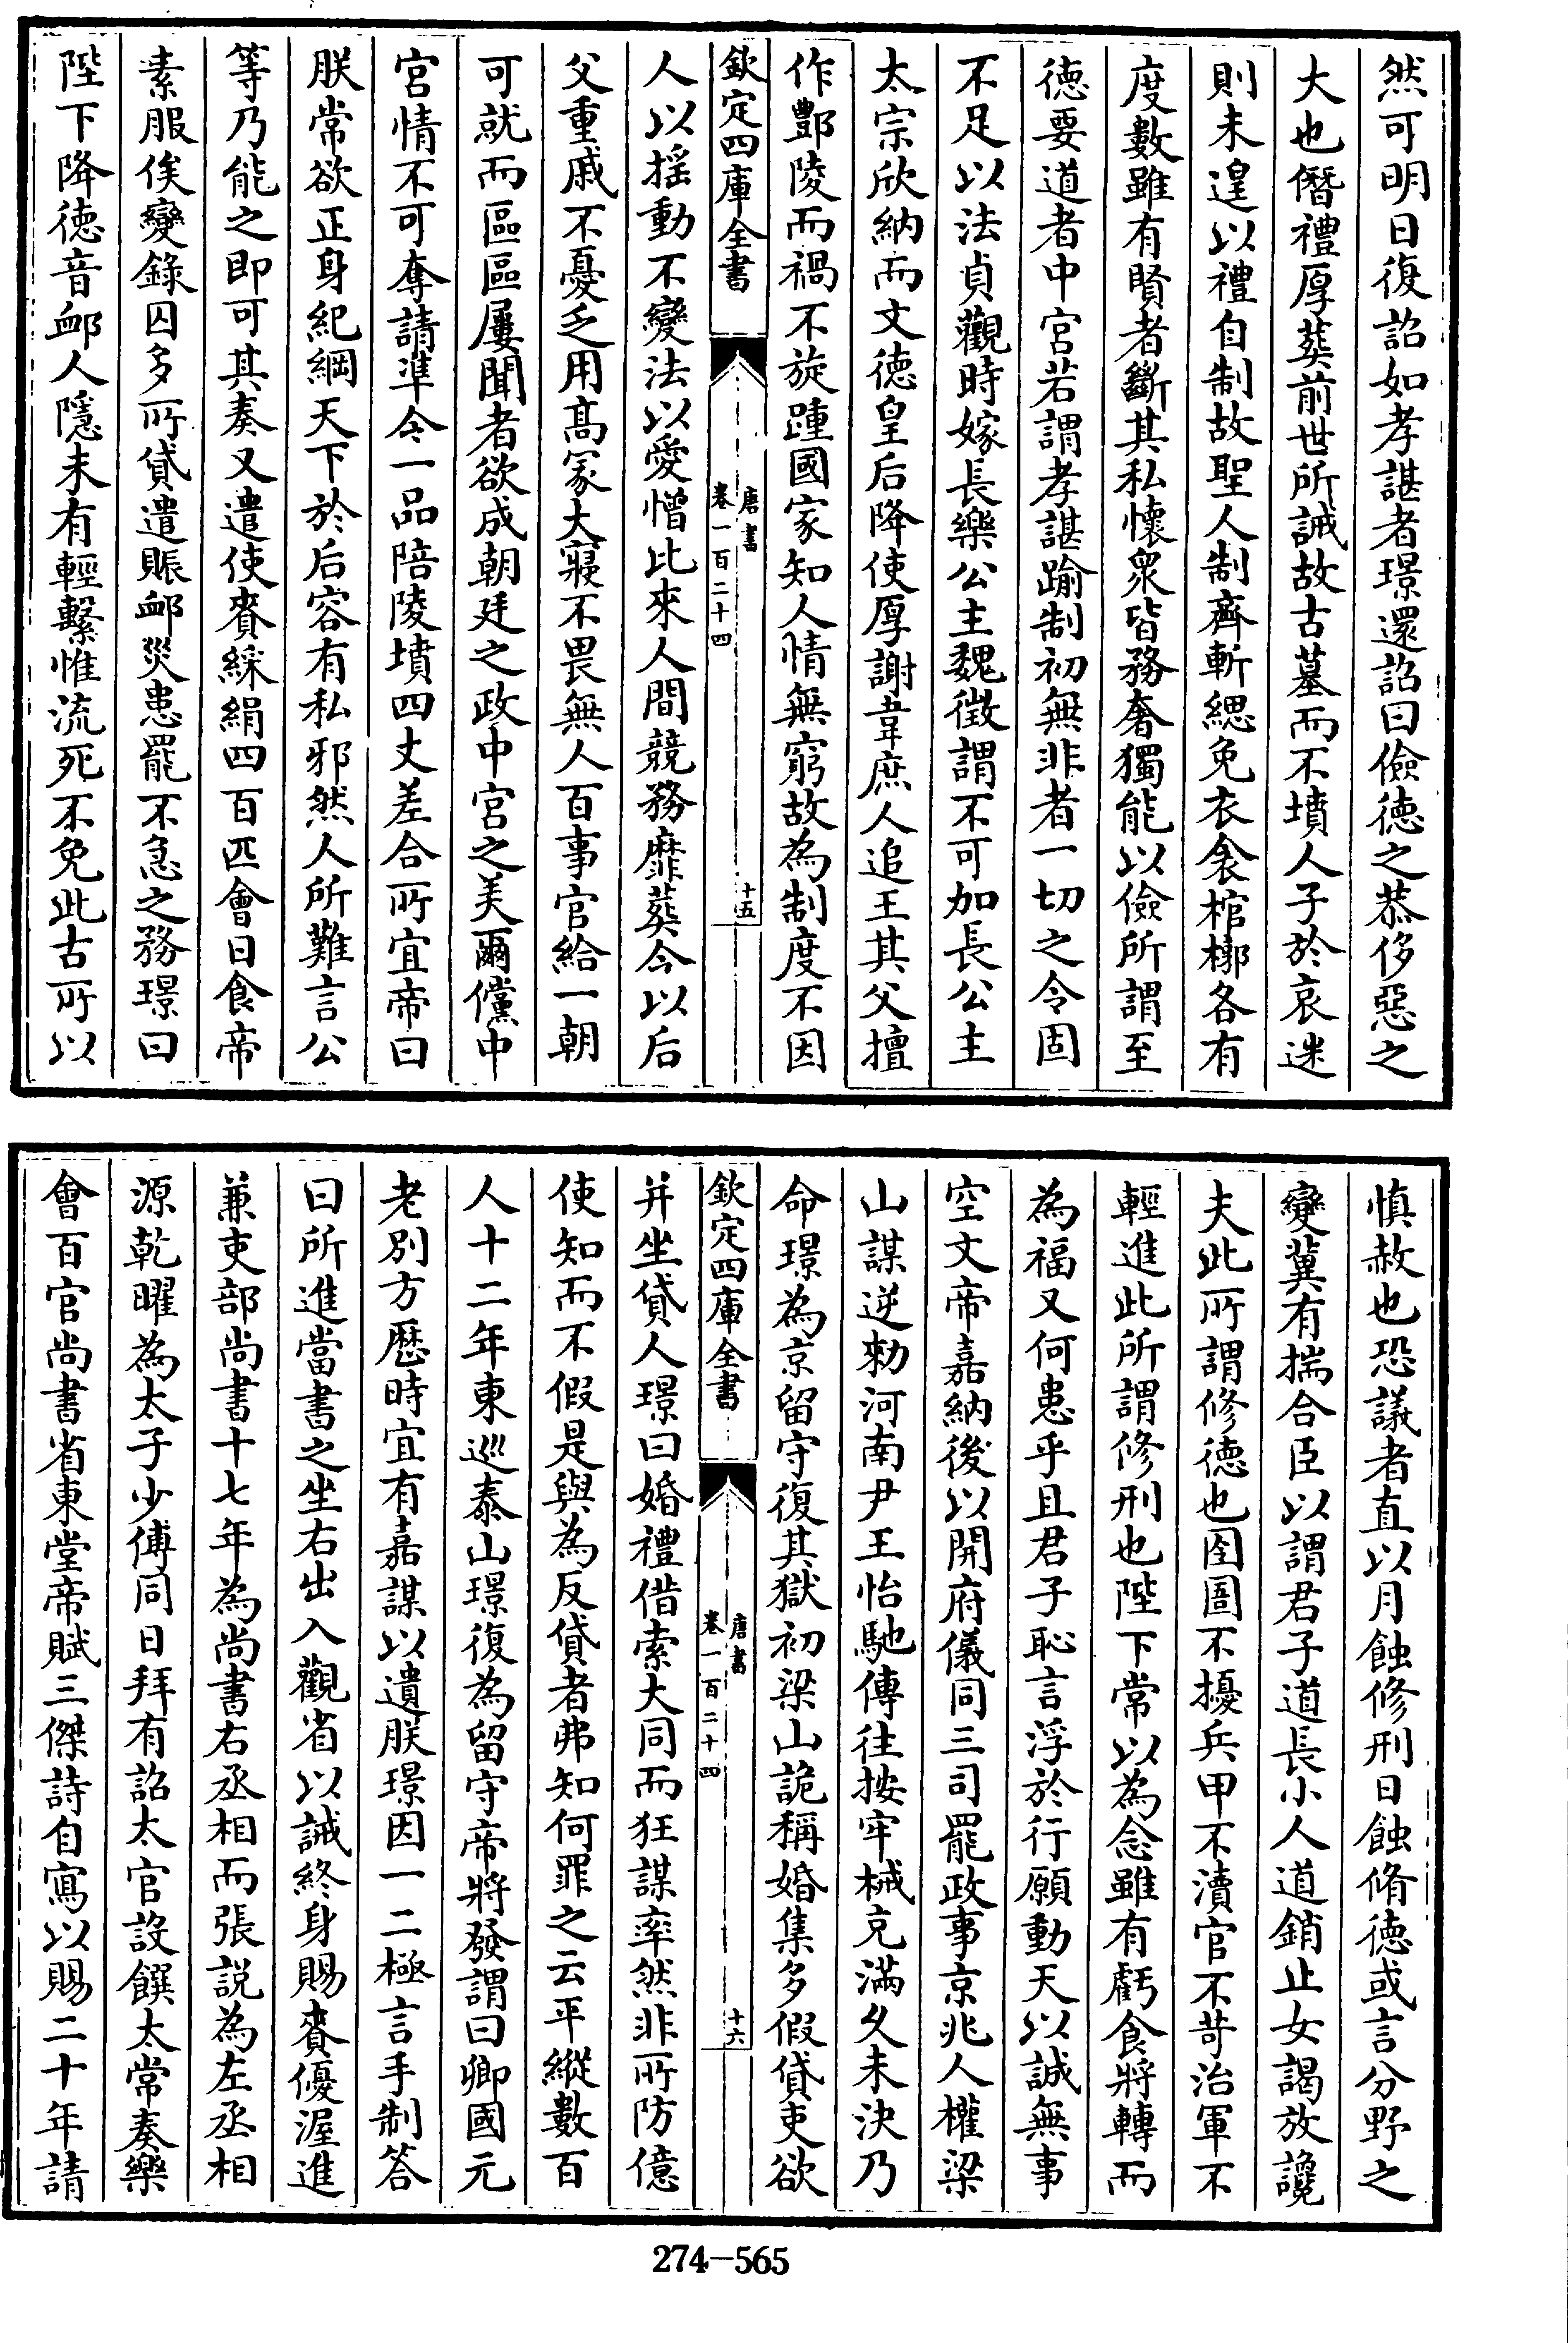 然可明日復詔如孝諶者璟還詔曰儉徳之恭侈惡之
大也僭禮厚葬前世所誡故古墓而不墳人子於哀迷
則未遑以禮自制故聖人制齊斬緦免衣衾棺槨各有
度數雖有賢者斷其私懷衆皆務奢獨能以儉所謂至
徳要道者中宮若謂孝諶踰制初無非者一切之令固
不足以法貞觀時嫁長樂公主魏徴謂不可加長公主
太宗欣納而文徳皇后降使厚謝韋庶人追王其父擅
作酆陵而禍不旋踵國家知人情無窮故為制度不因
欽定四庫全書
唐書
卷一百二十四
十五
人以揺動不變法以愛憎比來人間競務靡葬今以后
父重戚不憂乏用髙冢大寢不畏無人百事官給一朝
可就而區區屢聞者欲成朝廷之政中宮之美爾儻中
宮情不可奪請準令一品陪陵墳四丈差合所宜帝曰
朕常欲正身紀綱天下於后容有私邪然人所難言公
等乃能之即可其奏又遣使賚綵絹四百匹會日食帝
素服俟變錄囚多所貸遣賑䘏災患罷不急之務璟曰
陛下降徳音䘏人隱末有輕繫惟流死不免此古所以
慎赦也恐議者直以月蝕修刑日蝕脩徳或言分野之
變冀有揣合臣以謂君子道長小人道銷止女謁放讒
夫此所謂修徳也囹圄不擾兵甲不瀆官不苛治軍不
輕進此所謂修刑也陛下常以為念雖有虧食將轉而
為福又何患乎且君子恥言浮於行願動天以誠無事
空文帝嘉納後以開府儀同三司罷政事京兆人權梁
山謀逆勑河南尹王怡馳傳往按牢械充滿久未決乃
命璟為京留守復其獄初梁山詭稱婚集多假貸吏欲
欽定四庫全書
唐書
卷一百二十四
十六
并坐貸人璟曰婚禮借索大同而狂謀率然非所防億
使知而不假是與為反貸者弗知何罪之云平縱數百
人十二年東巡泰山璟復為留守帝將發謂曰卿國元
老別方歴時宜有嘉謀以遺朕璟因一二極言手制答
曰所進當書之坐右出入觀省以誡終身賜賚優渥進
兼吏部尚書十七年為尚書右丞相而張説為左丞相
源乾曜為太子少傅同日拜有詔太官設饌太常奏樂
會百官尚書省東堂帝賦三傑詩自寫以賜二十年請
274-565